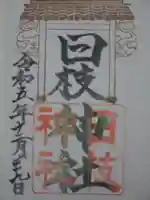 日枝神社
日枝
神社
令和五年十二月二十九日